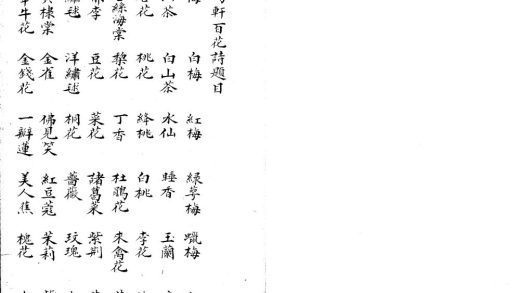 軒百花詩題目
梅 白梅 紅梅 綠萼梅 蠟梅
茶 白山茶 水仙 睡香 玉蘭
花 桃花 絳桃 白桃 李花
絲海棠 梨花 丁香 杜鵑花 來禽花
李 豆花 菜花 諸葛菜 紫荆
繡毬 洋繡毬 桐花 薔薇 玫瑰
棣棠 金雀 佛見笑 紅豆蔻 茉莉
牛花 金錢花 一瓣蓮 美人蕉 槐花